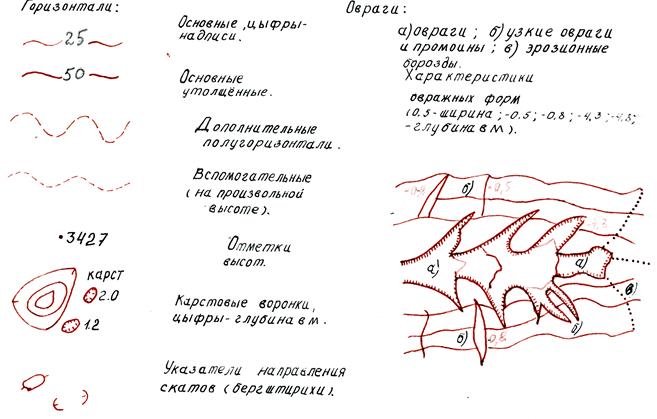 Горизонтали:
25
Основные, цыфры-
надписи.
50
Основные
утолщённые.
Дополнительные
полугоризонтали.
Вспомогательные
(на произвольной
высоте).
3427
Отметки
высот.
карст
2.0
12
Карстовые воронки,
цыфры-глубина в м.
Указатели направления
скатов (бергштирихи).
Овраги:
а) овраги; б) узкие овраги
и промоины; в) эрозионные
борозды.
Характеристики
овражных форм
(0,5-ширина; -0,5; -0,8; -4,3; -4,8;
-глубина в м).
б)
-0,5
а)
а)
в)
б)
-0,8
б)